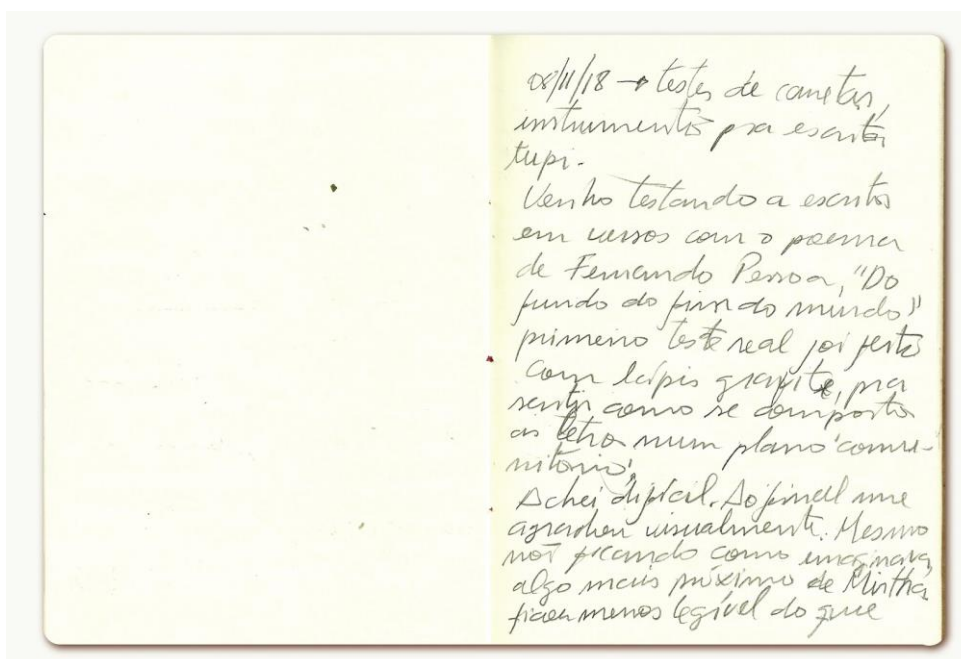 08/11/18 → testes de canetas,
instrumentos pra escrita
tupi.
Venho testando a escrita
em versos com o poema
de Fernando Pessoa, "Do
fundo do fim do mundo"
primeiro teste real foi feito
com lápis grafite, pra
sentir como se comporta
as letra num plano 'comu-
nitário'.
Achei difícil. Ao final me
agradou visualmente. Mesmo
não ficando como imaginava,
algo mais próximo de Mirtha,
ficou menos legível do que